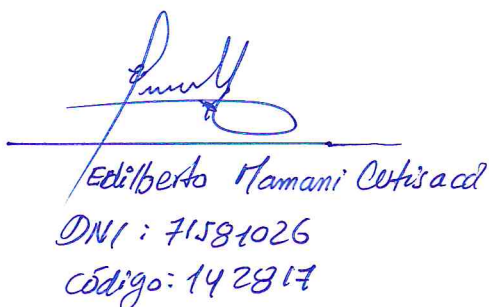 Edilberto Mamani Cutisaca
DNI: 71581026
Código: 142817